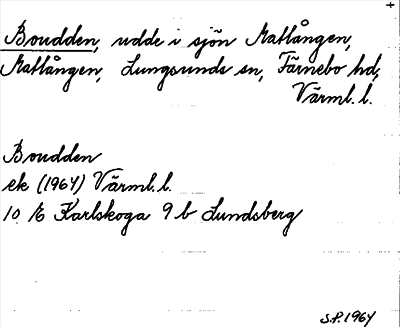 +
Boudden, udde i sjön Matlången,
Matlången, Lungsunds sn, Färnebo hd,
Värml. l.
Boudden
ek (1964) Värml. l.
10 E Karlskoga 9 b Lundsberg
S.P. 1964